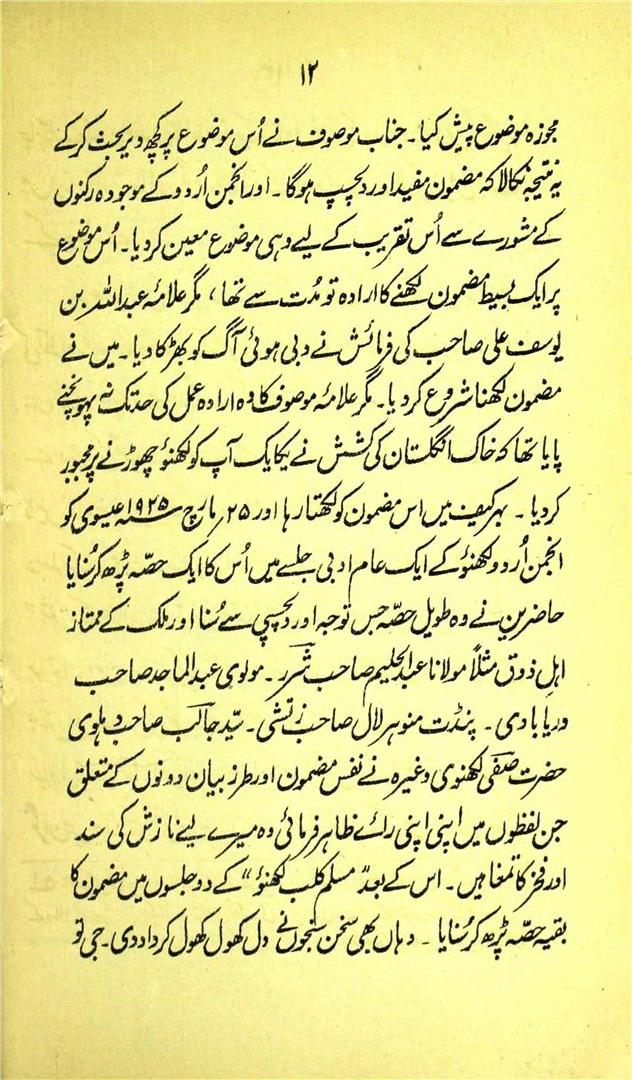 ۱۲
مجوزہ موضوع پیش کیا۔ جناب موصوف نے اُس موضوع پر کچھ دیر بحث کرکے
یہ نتیجہ نکالا کہ مضمون مفید اور دلچسپ ہوگا۔ اور انجمن اُردو کے موجودہ رکنوں
کے مشورے سے اُس تقریب کے لیے وہی موضوع معین کردیا۔ اُس موضوع
پر ایک بسیط مضمون لکھنے کا ارادہ تو مُدت سے تھا ، مگر علامۂ عبد اللہ بن
یوسف علی صاحب کی فرمائش نے دبی ہوئی آگ کو بھڑکا دیا۔ میں نے
مضمون لکھنا شروع کردیا۔ مگر علامۂ موصوف کا وہ ارادہ عمل کی حد تک نہ پہونچنے
پایا تھا کہ خاک انگلستان کی کشش نے یکایک آپ کو لکھنؤ چھوڑنے پر مجبور
کردیا ۔ بہر کیف میں اس مضمون کو لکھتا رہا اور ۲۵ مارچ سنہ ۱۹۲۵ عیسوی کو
انجمن اُردو لکھنؤ کے ایک عام ادبی جلسے میں اُس کا ایک حصّہ پڑھ کر سُنایا
حاضرین نے وہ طویل حصّہ جس توجہ اور دلچسپی سے سُنا اور ملک کے ممتاز
اہلِ ذوق مثلاً مولانا عبد الحلیم صاحب شرر ۔ مولوی عبد الماجد صاحب
دریابادی ۔ پنڈت منوہر لال صاحب زتشی ۔ سیّد جالب صاحب دہلوی
حضرت صفی لکھنوی وغیرہ نے نفس مضمون اور طرز بیان دونوں کے متعلق
جن لفظوں میں اپنی اپنی رائے ظاہر فرمائی وہ میرے لیے نازش کی سند
اور فخر کا تمغا ہیں۔ اس کے بعد "مسلم کلب لکھنؤ" کے دو جلسوں میں مضمون کا
بقیہ حصّہ پڑھ کر سُنایا ۔ وہاں بھی سخن سنجوں نے دل کھول کھول کر داد دی۔ جی تو